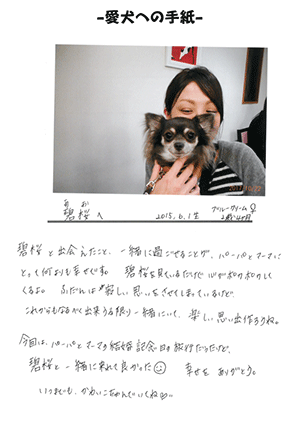 -愛犬への手紙-
碧桜へ
2015.6.1生
碧桜と出会えたこと、一緒に過ごせることが、パーパとマーマに
とって何よりも幸せです。 碧桜を見ているだけで心がポカポカして
くるよ。 ふだんは寂しい思いをさせてしまっているけど、
これからもなるべく出来うる限り一緒にいて、楽しい思い出作ろうね。
今回は、パーパとマーマの結婚記念日の旅行だったけど、
碧桜と一緒に来れて良かった 幸せをありがとう
いつまでも、かわいこちゃんでいてね